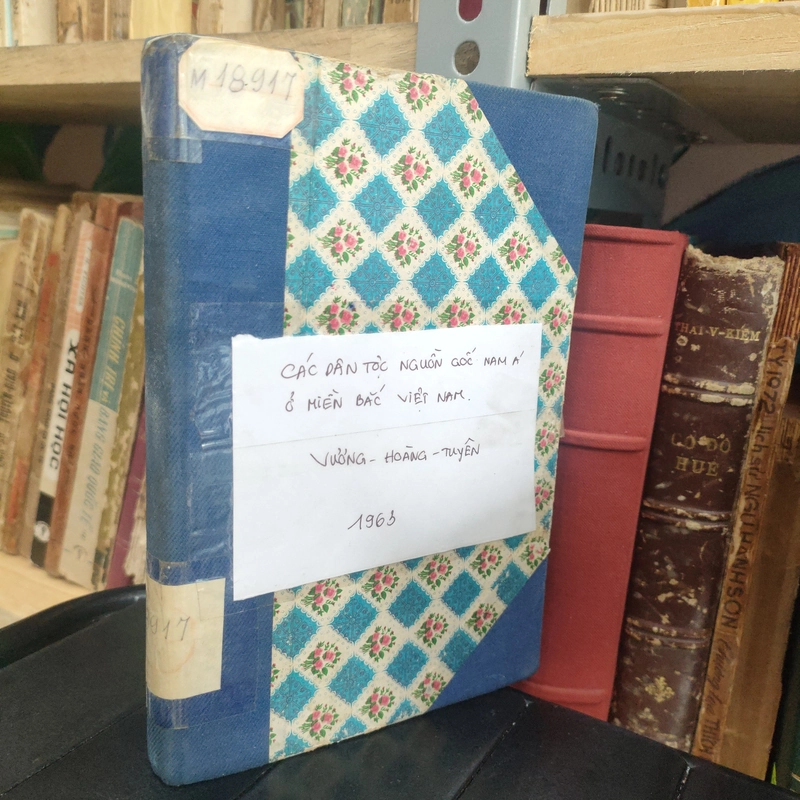 M 18.917
CÁC DÂN TỘC NGUỒN GỐC NAM Á
Ở MIỀN BẮC VIỆT NAM.
VƯƠNG - HOÀNG - TUYÊN
1963
917
XÃ HỘI HỌC
THAI-V-KIỂM
CỐ ĐÔ
HUẾ
1972 Lịch sử NGŨ HÀNH SƠN